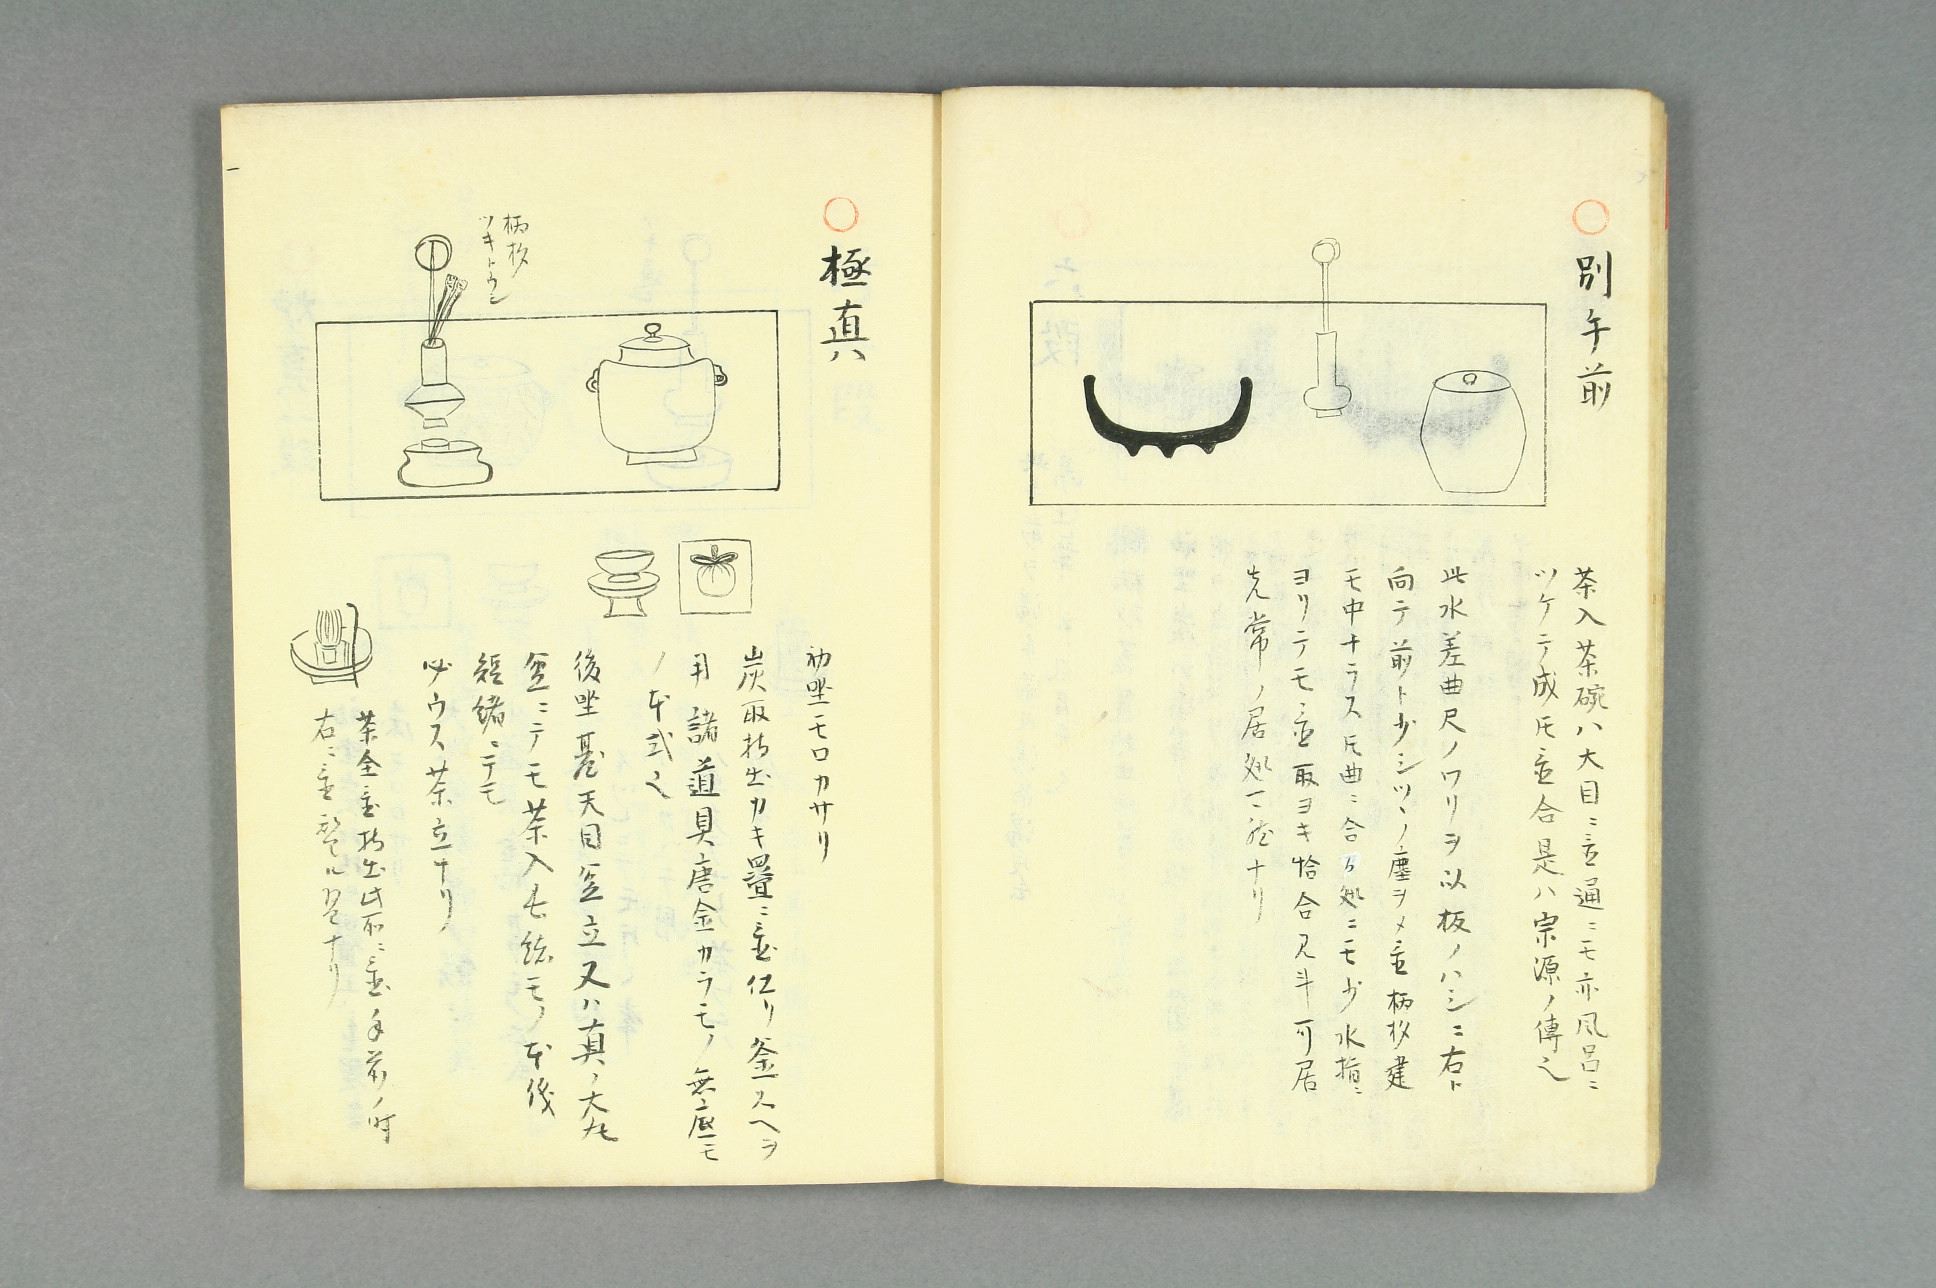 別手前
茶入茶碗ハ大目ニ置通ニモ亦風呂ニ
ツケテ成ㇳモ置合是ハ宗源ノ傳也
此水差曲尺ノワリヲ以板ノハシニ右ト
向テ前ト少シツヽノ塵ヲメ置柄杓建
モ中ナラスㇳモ曲ニ合ル処ニモ少水指ニ
ヨリテモ置取ヨキ恰合見斗可居
先常ノ居処一ニ
極真ハ
柄杓
ツキトウシ
初坐モロカサリ
炭取持出カキ疊ニ置仕リ釜スヘヲ
用諸道具唐金カラモノ無底モ
ノ本式也
後坐臺天目盆立又ハ真ノ大丸
盆ニテモ茶入モノ
短緒ニテモ
必ウス茶立ナリ
茶全置持出此所ニ置手前ノ時
右ニ置ナリ